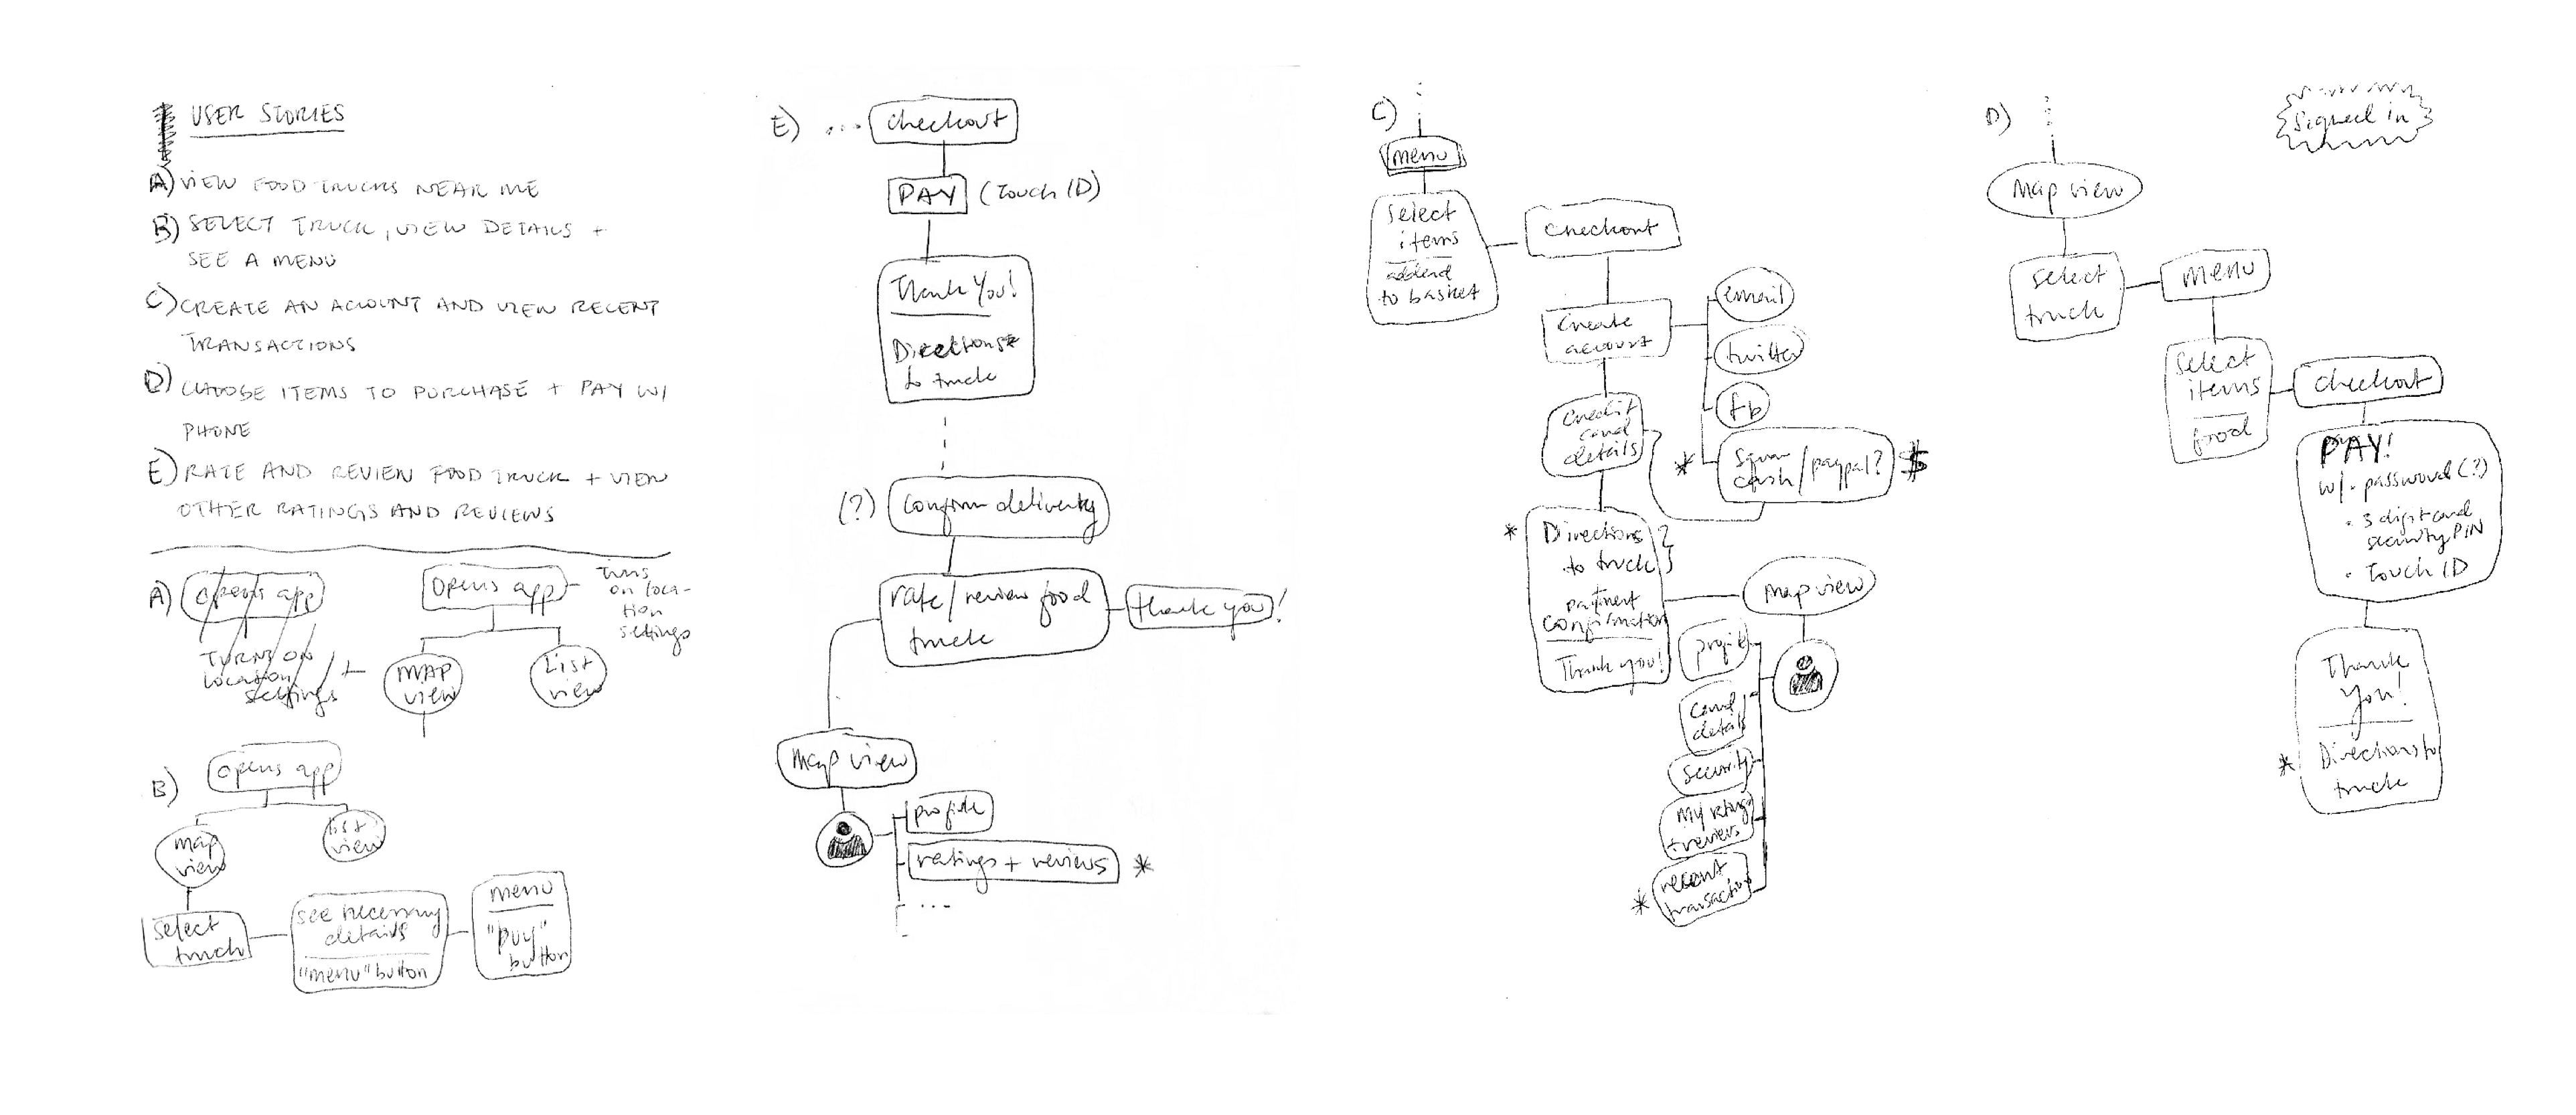 USER STORIES
A) VIEW FOOD TRUCKS NEAR ME
B) SELECT TRUCK, VIEW DETAILS +
SEE A MENU
C) CREATE AN ACCOUNT AND VIEW RECENT
TRANSACTIONS
D) CHOOSE ITEMS TO PURCHASE + PAY W/
PHONE
E) RATE AND REVIEW FOOD TRUCK + VIEW
OTHER RATINGS AND REVIEWS
A)
opens app
TURNS ON
location
settings
opens app
turns
on loca-
tion
settings
MAP
view
List
view
B)
opens app
map
view
list
view
select
truck
see necessary
details
"menu" button
menu
"buy"
button
E) ...
checkout
PAY (Touch ID)
Thank You!
Directions*
to truck
(?) confirm delivery
rate/review food
truck
thank you!
map view
profile
ratings + reviews *
...
C)
menu
select
items
added
to basket
checkout
create
account
email
twitter
fb
* square
cash/paypal? $
credit
card
details
* Directions
to truck
payment
confirmation
Thank you!
map view
profile
card
details
security
my ratings
+ reviews
* recent
transactions
D)
signed in
map view
select
truck
menu
select
items
food
checkout
PAY!
w/ • password (?)
• 3 digit card
security PIN
• Touch ID
Thank
You!
* Directions to
truck